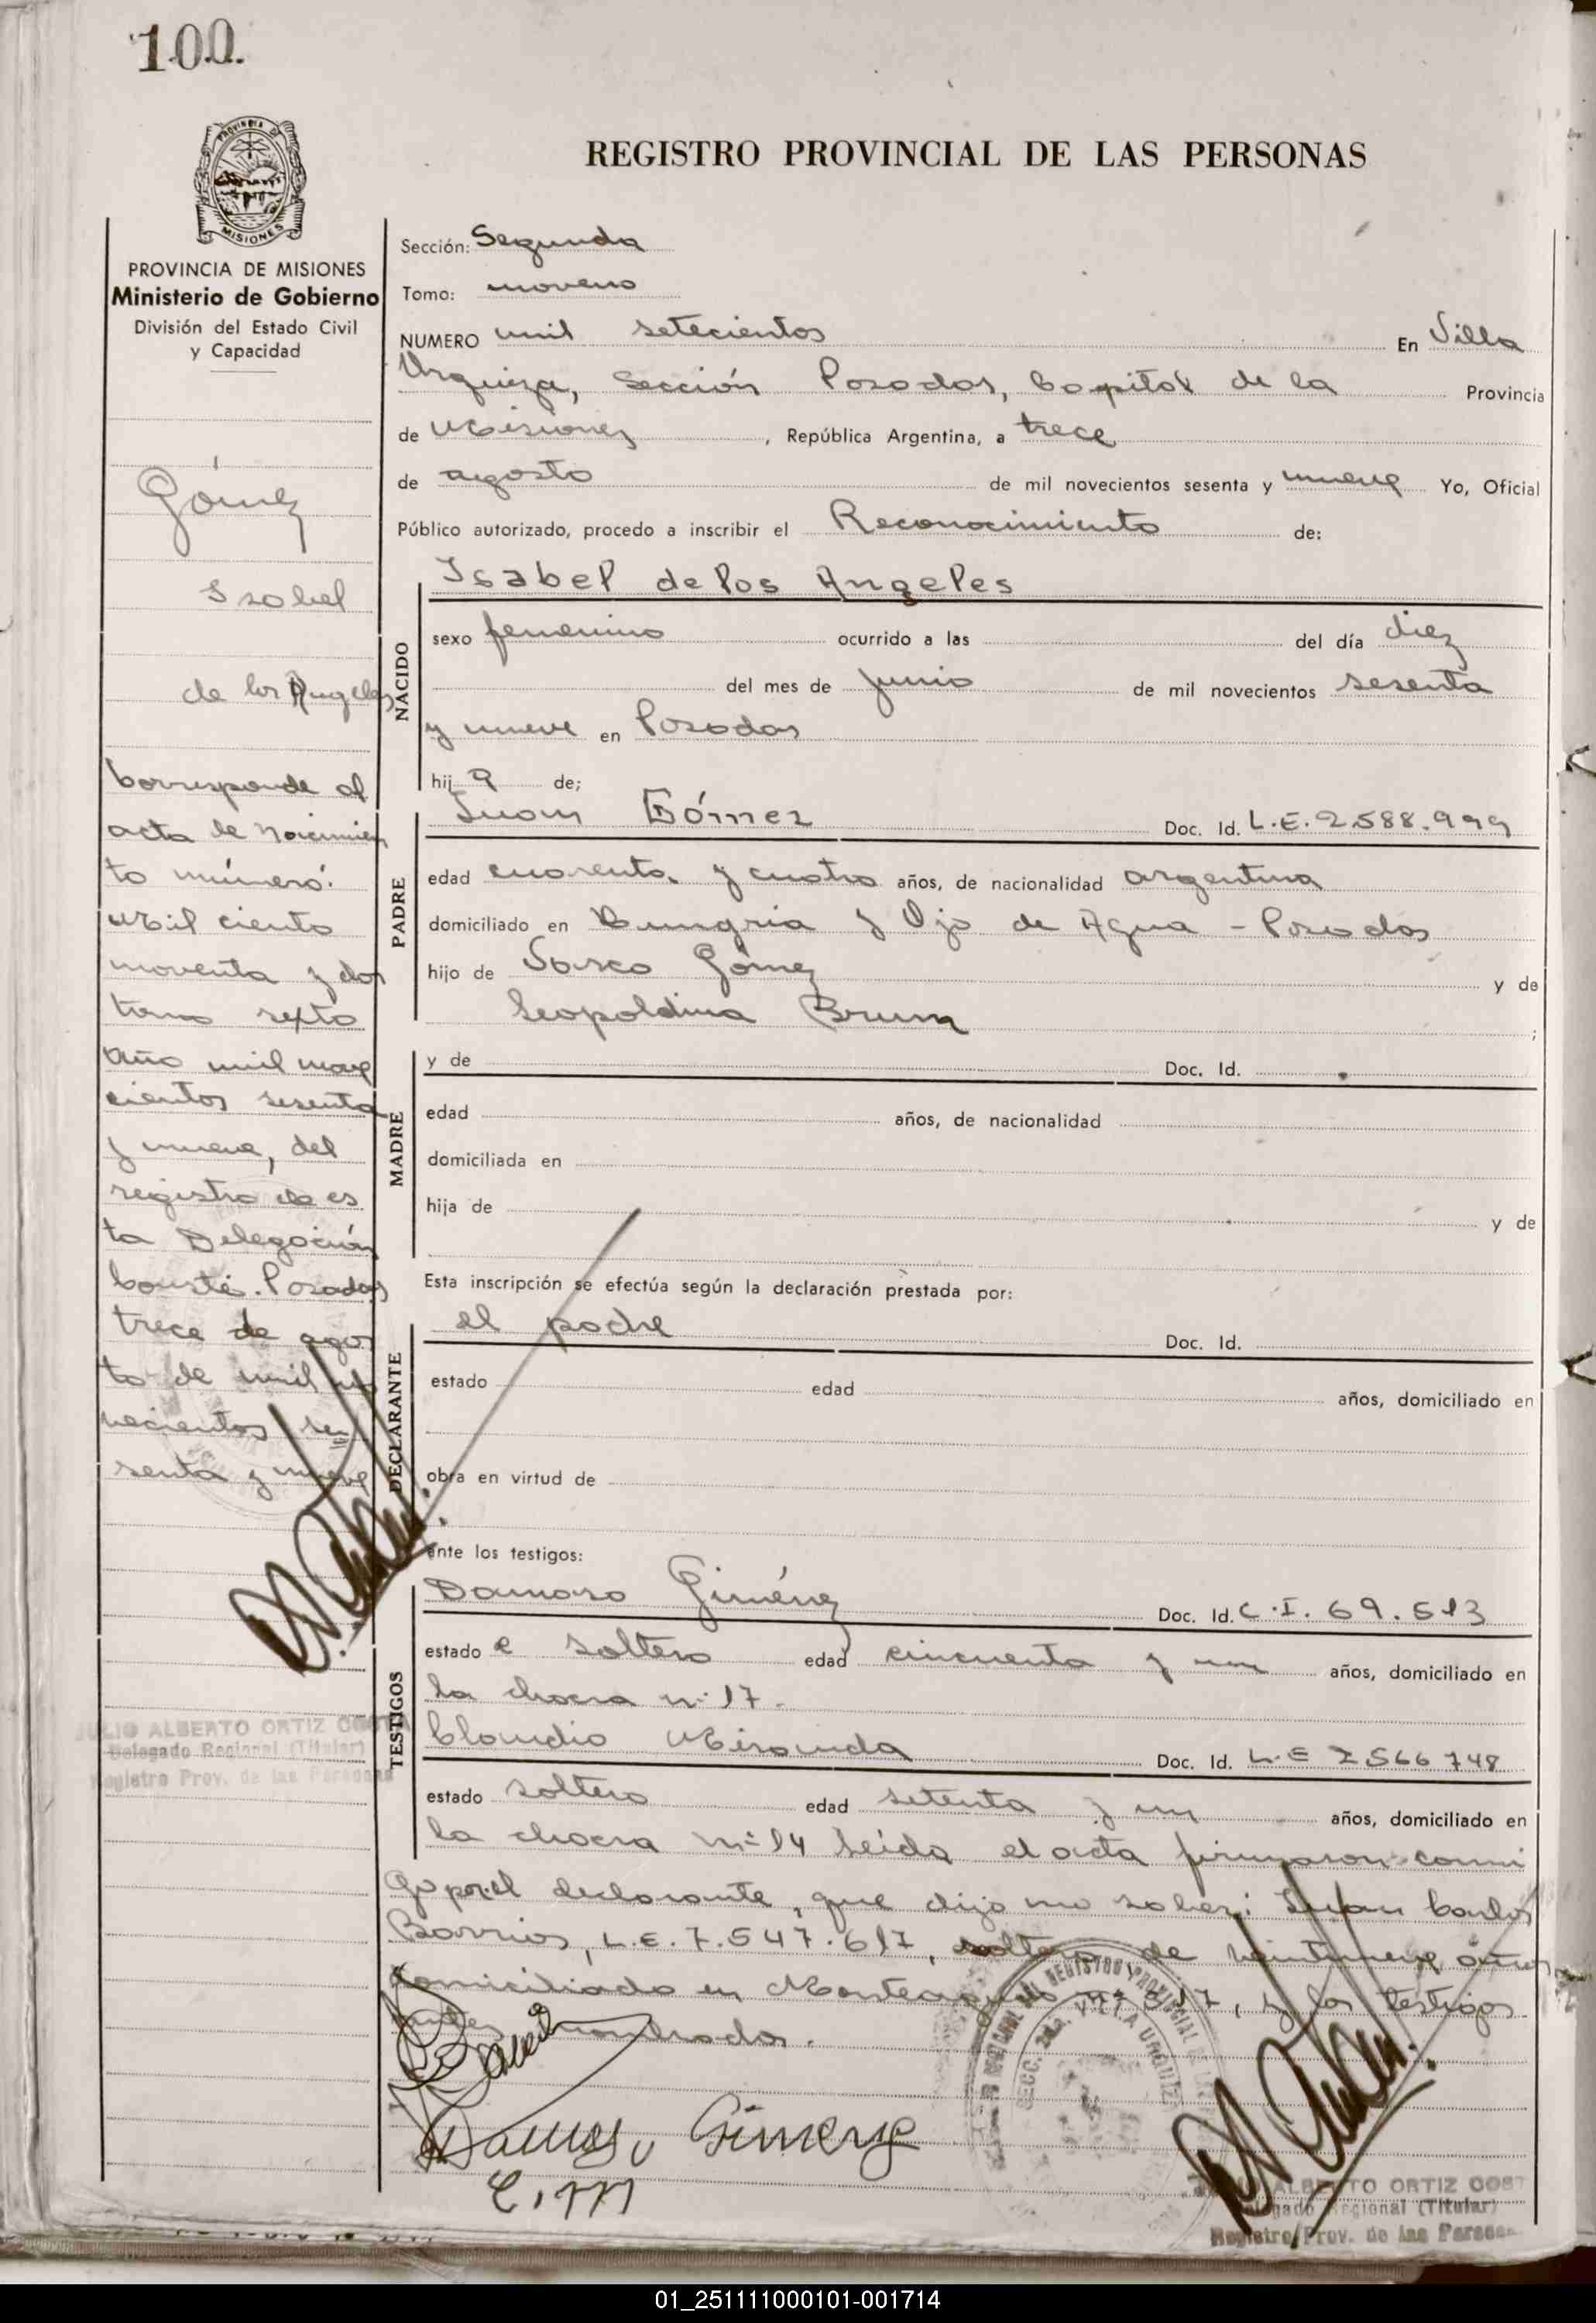 100.
PROVINCIA DE
MISIONES
REGISTRO PROVINCIAL DE LAS PERSONAS
PROVINCIA DE MISIONES
Ministerio de Gobierno
División del Estado Civil
y Capacidad
Gómez
Isabel
de los Angeles
Corresponde al
acta de Nacimien
to número:
Mil ciento
noventa y dos
tomo sexto
Año mil nove
cientos sesenta
y nueve, del
registro de es
ta Delegación
Conste. Posadas
trece de agos
to de mil no
vecientos se
senta y nueve
JULIO ALBERTO ORTIZ COSTA
Delegado Regional (Titular)
Registro Prov. de las Personas
Sección: Segunda
Tomo: noveno
NUMERO mil setecientos En Villa
Urquiza, Sección Posadas, Capital de la Provincia
de Misiones, República Argentina, a trece
de agosto de mil novecientos sesenta y nueve Yo, Oficial
Público autorizado, procedo a inscribir el Reconocimiento de:
NACIDO
Isabel de los Angeles
sexo femenino ocurrido a las del día diez
del mes de junio de mil novecientos sesenta
y nueve en Posadas
hija de;
PADRE
Juan Gómez Doc. Id. L.E. 2.588.999
edad cuarenta y cuatro años, de nacionalidad argentina
domiciliado en Hungria y Ojo de Agua - Posadas
hijo de Gómez y de
Leopoldina Brum ;
MADRE
y de Doc. Id.
edad años, de nacionalidad
domiciliada en
hija de y de
Esta inscripción se efectúa según la declaración prestada por:
DECLARANTE
el padre Doc. Id.
estado edad años, domiciliado en
obra en virtud de
ante los testigos:
TESTIGOS
Damaso Giménez Doc. Id. C.I. 69.513
estado soltero edad cincuenta y un años, domiciliado en
la chacra nº 17.
Claudio Miranda Doc. Id. L.E 2.566 748
estado soltero edad setenta y un años, domiciliado en
la chacra nº 14 Leída el acta firmaron conmi
go por el declarante, que dijo no saber: Juan Carlos
Barrios, L.E. 7.547.617, soltero, de veintinueve años
domiciliado en nº 617, y los testigos
antes nombrados.
Damaso Gimenez
C. M
SECC. 2da. VILLA URQUIZA
JULIO ALBERTO ORTIZ COST
Delegado Regional (Titular)
Registro Prov. de las Personas
01_251111000101-001714